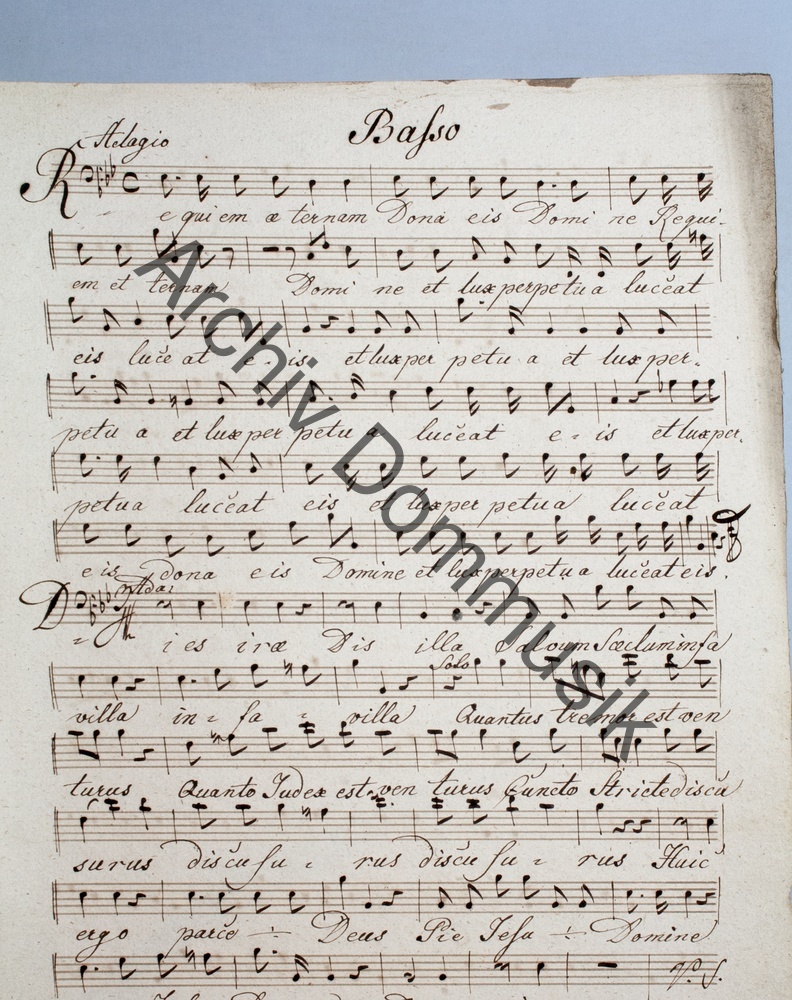 Basso
Adagio
Requiem æternam Dona eis Domine Requi-
em et ternam Domine et lux perpetua luceat
eis luceat e-is et lux per petua et lux per-
petua et lux per petua luceat e-is et lux per.
petua luceat eis et lux per petua luceat
eis dona eis Domine et lux perpetua luceat eis.
Dies iræ Dis illa Salvum Sæclum in fa
villa in-fa-villa Solo Quantus tremor est ven
turus Quanto Judex est ven turus Cuncto Stricte discu
surus discusu-rus discusu-rus Huic
ergo parce ÷ Deus Pie Jesu ÷ Domine
V. S.
Archiv Dommusik